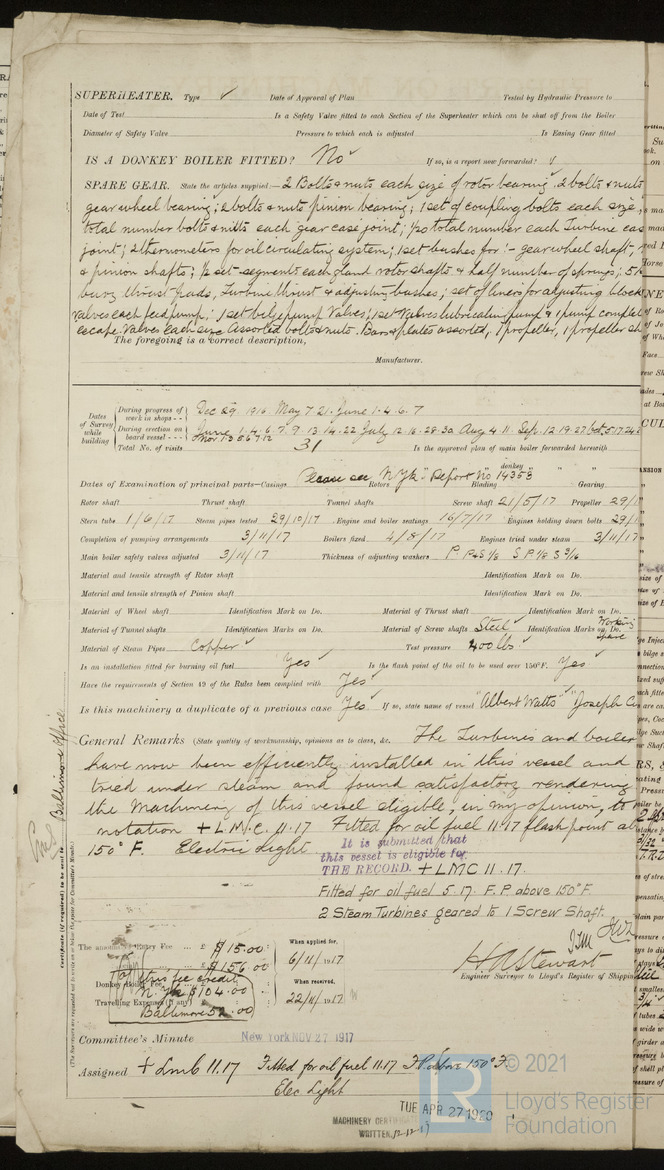 SUPERHEATER. Type ✓ Date of Approval of Plan Tested by Hydraulic Pressure to
Date of Test Is a Safety Valve fitted to each Section of the Superheater which can be shut off from the Boiler
Diameter of Safety Valve Pressure to which each is adjusted Is Easing Gear fitted
IS A DONKEY BOILER FITTED? No ✓ If so, is a report now forwarded? ✓
SPARE GEAR. State the articles supplied:— 2 Bolts & nuts each size of rotor bearing. 2 bolts & nuts
gear wheel bearing; 2 bolts & nuts pinion bearing; 1 set of coupling bolts each size;
total number bolts & nuts each gear case joint; 1/20 total number each Turbine cas
joint; 2 thermometers for oil circulating system; 1 set bushes for :- gear wheel shaft,
& pinion shafts; 1/2 set segments each gland rotor shafts & half number of springs;
thrust pads, Turbine thrust & adjusting bushes; set of liners for adjusting block
valves each feed pump; 1 set bilge pump Valves; 1 set Valves lubricating pump & 1 pump complet
escape Valves each size Assorted bolts & nuts. Bars & plates assorted, 1 propeller, 1 propeller sh
The foregoing is a correct description,
Manufacturer.
Dates of Survey while building
During progress of work in shops - - Dec 29. 1916. May 7. 21. June 1. 4. 6. 7
During erection on board vessel - - - June 1. 4. 6. 7. 9. 13. 14. 22 July 12. 16. 28. 30 Aug 4. 11. Sep. 12. 19. 27 Oct 5. 17. 24
Total No. of visits 31 Is the approved plan of main boiler forwarded herewith
donkey " " "
Dates of Examination of principal parts—Casings Please see N. Yk. Report No 14358 Rotors Blading Gearing
Rotor shaft Thrust shaft Tunnel shafts Screw shaft 21/5/17 Propeller 29/1
Stern tube 1/6/17 Steam pipes tested 29/10/17 Engine and boiler seatings 16/7/17 Engines holding down bolts 29/1
Completion of pumping arrangements 3/11/17 Boilers fixed 4/8/17 Engines tried under steam 3/11/17
Main boiler safety valves adjusted 3/11/17 Thickness of adjusting washers
Material and tensile strength of Rotor shaft Identification Mark on Do.
Material and tensile strength of Pinion shaft Identification Mark on Do.
Material of Wheel shaft Identification Mark on Do. Material of Thrust shaft Identification Mark on Do.
Material of Tunnel shafts Identification Marks on Do. Material of Screw shafts Steel Identification Marks on Do. Working Spare
Material of Steam Pipes Copper ✓ Test pressure 400 lbs ✓
Is an installation fitted for burning oil fuel Yes ✓ Is the flash point of the oil to be used over 150°F. Yes ✓
Have the requirements of Section 49 of the Rules been complied with Yes ✓
Is this machinery a duplicate of a previous case Yes ✓ If so, state name of vessel "Albert Watts" "Joseph Cu
General Remarks (State quality of workmanship, opinions as to class, &c. The Turbines and boiler
have now been efficiently installed in this vessel and
tried under steam and found satisfactory rendering
the Machinery of this vessel eligible, in my opinion, to
notation + L.M.C. 11.17 Fitted for oil fuel 11.17 flash point ab
150° F. Electric Light
It is submitted that
this vessel is eligible for
THE RECORD. + LMC 11.17.
Fitted for oil fuel 5.17. F.P. above 150° F.
2 Steam Turbines geared to 1 Screw Shaft.
Baltimore Office
Certificate (if required) to be sent to
(The Surveyors are requested not to write on or below the space for Committee's Minute.)
The amount of Entry Fee .. £ $ 15.00 : When applied for,
£ $ 156.00 6/11/1917
Of this fee credit
Donkey Boiler Fee N. Yk $ 104.00 When received,
Travelling Expenses (if any) £ Baltimore 52.00 22/11/1917
H.A. Stewart
Engineer Surveyor to Lloyd's Register of Shippin
Committee's Minute New York NOV 27 1917
Assigned + Lmb 11.17 Fitted for oil fuel 11.17 F.P. above 150° F.
Elec Light
TUE APR 27 1920
MACHINERY CERTIFICATE
WRITTEN.
© 2021
Lloyd's Register
Foundation